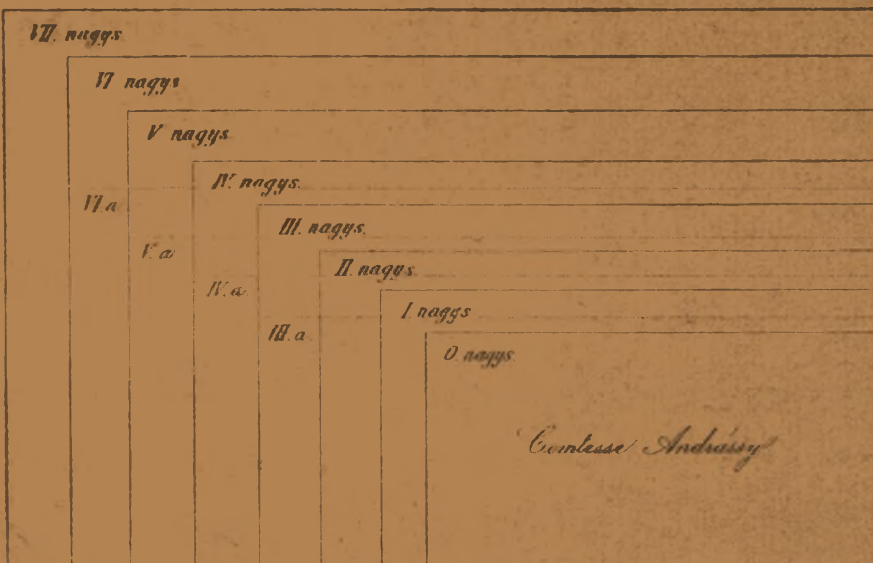 VII. nagys.
VI nagys
V nagys.
IV. nagys.
VI.a
III. nagys.
V.a
II. nagys.
IV.a
I. nagys
III.a
O. nagys.
Comtesse Andrássy